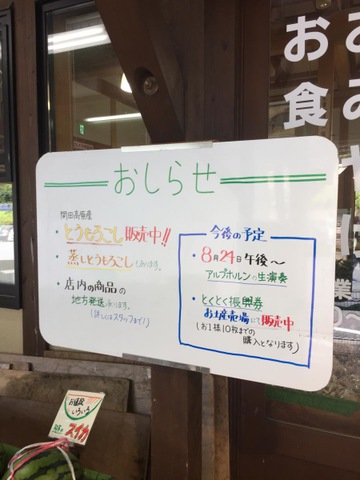 おしらせ
開田高原産
・とうもろこし販売中!!
・蒸しとうもろこしもあります。
・店内の商品の
地方発送承ります。
(詳しくはスタッフまで!)
今後の予定
・8月24日午後〜
アルプホルンの生演奏
・とくとく振興券
お土産売場にて販売中
(お1様10枚までの
購入となります)
お
食
スイカ